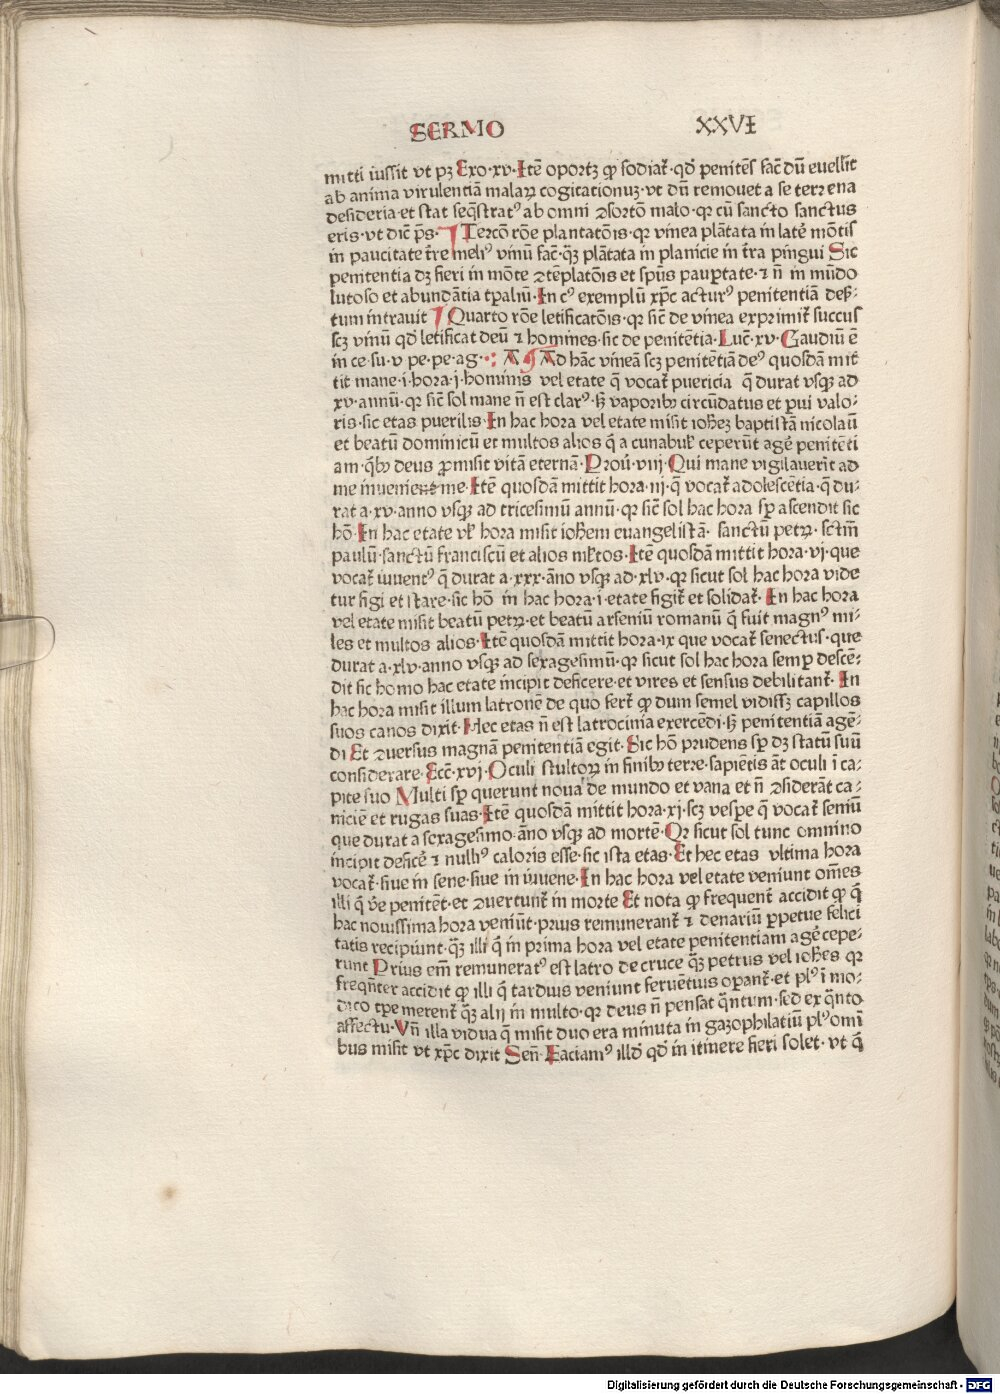 SERMO XXVI
mitti iussit vt pꝫ Exo·xv·Itē oportꝫ ꝙ fodiat᷑·qd̄ penitēs fac̄ dū euellit
ab anima virulentiā malaꝝ cogitationuꝫ·vt dn̄ remouet a se terrena
desideria·et stat seq̄stratꝰ ab omni ꝯsortō malo·qꝛ cū sancto sanctus
eris·vt dic̄ p̄s· Tercō rōe plantatōis·qꝛ vinea plātata in late᷑ mōtis
in paucitate t᷑re meliꝰ vinū fac̄·q̄ꝫ plātata in planicie in t᷑ra pingui Sic
penitentia dꝫ fieri in mōte ꝯtēplatōis et spūs paupertate·⁊ n̄ in mūdo
lutoso et abundātia tꝑaliū·In cꝰ exemplū xp̄c acturꝰ penitentiā deß:
tum intrauit Quarto rōe letificatōis·qꝛ sic̄ de vinea exprimit᷑ succus
scꝫ vinū qd̄ letificat deū ⁊ homines·sic de penitētia·Luc̄·xv·Gaudiū ē
in ce·su·v pe·pe·ag·: A Ad hāc vineā scꝫ penitētiā deꝰ quosdā mit
tit mane·i·hora·j·hominis vel etate q̄ vocat᷑ puericia q̄ durat vsqꝫ ad
xv·annū·qꝛ sic̄ sol mane n̄ est clarꝰ·sꝫ vaporibꝰ circūdatus et ꝑui valo:
ris·sic etas puerilis·In hac hora vel etate misit ioh̄eꝫ baptistā nicolaū
et beatū dominicū et multos alios q̄ a cunabul᷑ ceperūt age᷑ penitēti
am·q̄bꝰ deus ꝓmisit vitā eternā·Prou᷑·viij·Qui mane vigilauerīt ad
me inuenient me·Itē quosdā mittit hora·iij·q̄ vocat᷑ adolescētia·q̄ du:
rat a·xv·anno vsqꝫ ad tricesimū annū·qꝛ sic̄ sol hac hora sꝑ ascendit sic
hō·In hac etate vl᷑ hora misit ioh̄em euangelistā· sanctū petꝝ·sctm̄
paulū·sanctū franciscū et alios ml᷑tos·Itē quosdā mittit hora·vj·que
vocat᷑ iuuentꝰ q̄ durat a·xxx·āno vsqꝫ ad·xlv·qꝛ sicut sol hac hora vide
tur figi et stare·sic hō in hac hora·i·etate figit᷑ et solidat᷑· In hac hora
vel etate misit beatū petꝝ·et beatū arseniū romanū q̄ fuit magnꝰ mi:
les et multos alios·Itē quosdā mittit hora·ix que vocat᷑ senectus·que
durat a·xlv·anno vsqꝫ ad sexagesimū·qꝛ sicut sol hac hora semꝑ descē:
dit sic homo hac etate incipit deficere·et vires et sensus debilitant᷑· In
hac hora misit illum latronē de quo fert᷑ ꝙ dum semel vidissꝫ capillos
suos canos dixit·Hec etas n̄ est latrocinia exercēdi·sꝫ penitentiā agē:
di Et ꝯuersus magnā penitentiā egit·Sic hō prudens sꝑ dꝫ statū suū
considerare·Ecc̄·xvj·Oculi stultoꝝ in finibꝰ terre·sapiētis āt oculi ī ca:
pite suo Multi sꝑ querunt noua de mundo et vana et n̄ ꝯsiderāt ca:
niciē et rugas suas·Itē quosdā mittit hora·xj·scꝫ vesꝑe q̄ vocat᷑ seniū
que durat a sexagesimo·āno vsqꝫ ad mortē·Qꝛ sicut sol tunc omnino
incipit defice᷑ ⁊ nulliꝰ caloris esse·sic ista etas·Et hec etas vltima hora
vocat᷑·siue in sene·siue in iuuene·In hac hora vel etate veniunt om̄es
illi q̄ ve᷑ penitēt·et ꝯuertunt᷑ in morte Et nota ꝙ frequent᷑ accidit ꝙ q̄
hac nouissima hora veniūt·prius remunerant᷑ ⁊ denariū ꝑpetue felici
tatis recipiunt·q̄ꝫ illi q̄ in prima hora vel etate penitentiam age᷑ cepe:
runt Prius em̄ remuneratꝰ est latro de cruce q̄ꝫ petrus vel ioh̄es qꝛ
freqn̄ter accidit ꝙ illi q̄ tardius veniunt feruētius oꝑant᷑·et plꝰ ī mo:
dico tꝑe merent᷑ q̄ꝫ alij in multo·qꝛ deus n̄ pensat q̄ntum·sed ex q̄nto
affectu·Vn̄ illa vidua q̄ misit duo era minuta in gazophilatiū plꝰ omī
bus misit vt xp̄c dixit Sen̄·Faciamꝰ illd̄ qd̄ in itinere fieri solet·vt q̄
Digitalisierung gefördert durch die Deutsche Forschungsgemeinschaft - DFG